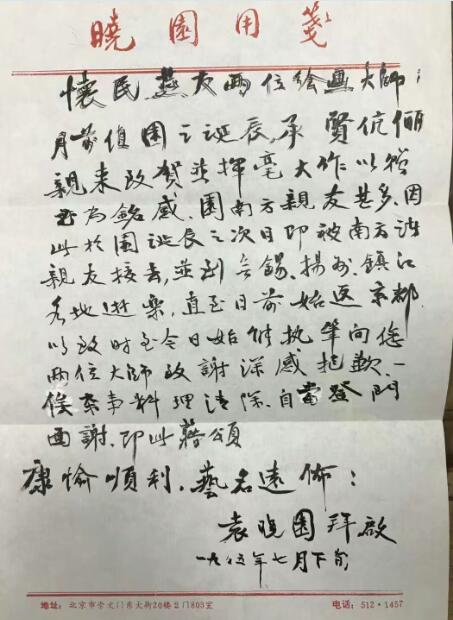 曉園用箋
懷民燕友兩位绘畫大師：
月前復園之誕辰，承賢伉俪
親来致贺並揮毫大作以贈
为銘感。園南方親友甚多，因
此於園誕辰之次日即被南方诸
親友接去，並到无錫、揚州、鎮江
各地逝樂，直至日前始返京都，
以致时至今日始能执筆向您
两位大師致謝深感抱歉。一
俟杂事料理清除，自當登門
面謝。即此 頌
康愉順利，藝名遠佈：
袁晓園拜啟
一九八五年七月下旬
地址：北京市崇文门东大街20楼2门803室 电话：512·1457